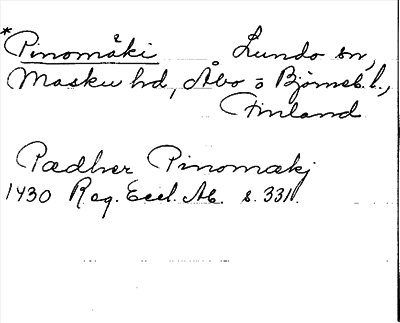 *Pinomäki Lundo sn,
Masku hd, Åbo o Björneb. l.,
Finland
Pædher Pinomækj
1430 Reg. Eccl. Ab. s. 331.